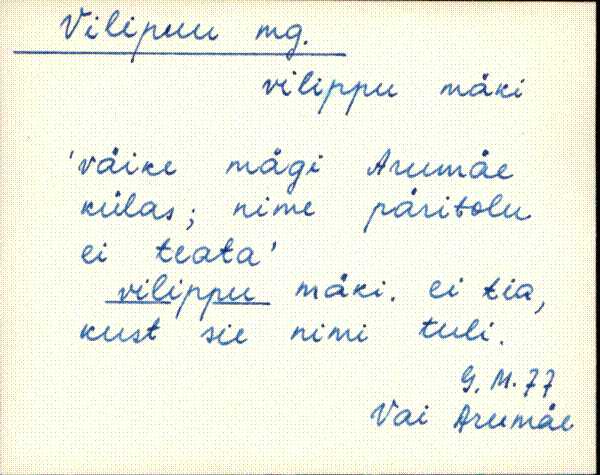 Vilipuu mg.
vilippu mäki
'väike mägi Arumäe
külas; nime päritolu
ei teata'
vilippu mäki. ei tia,
kust sie nimi tuli.
G. M. 77
Vai Arumäe